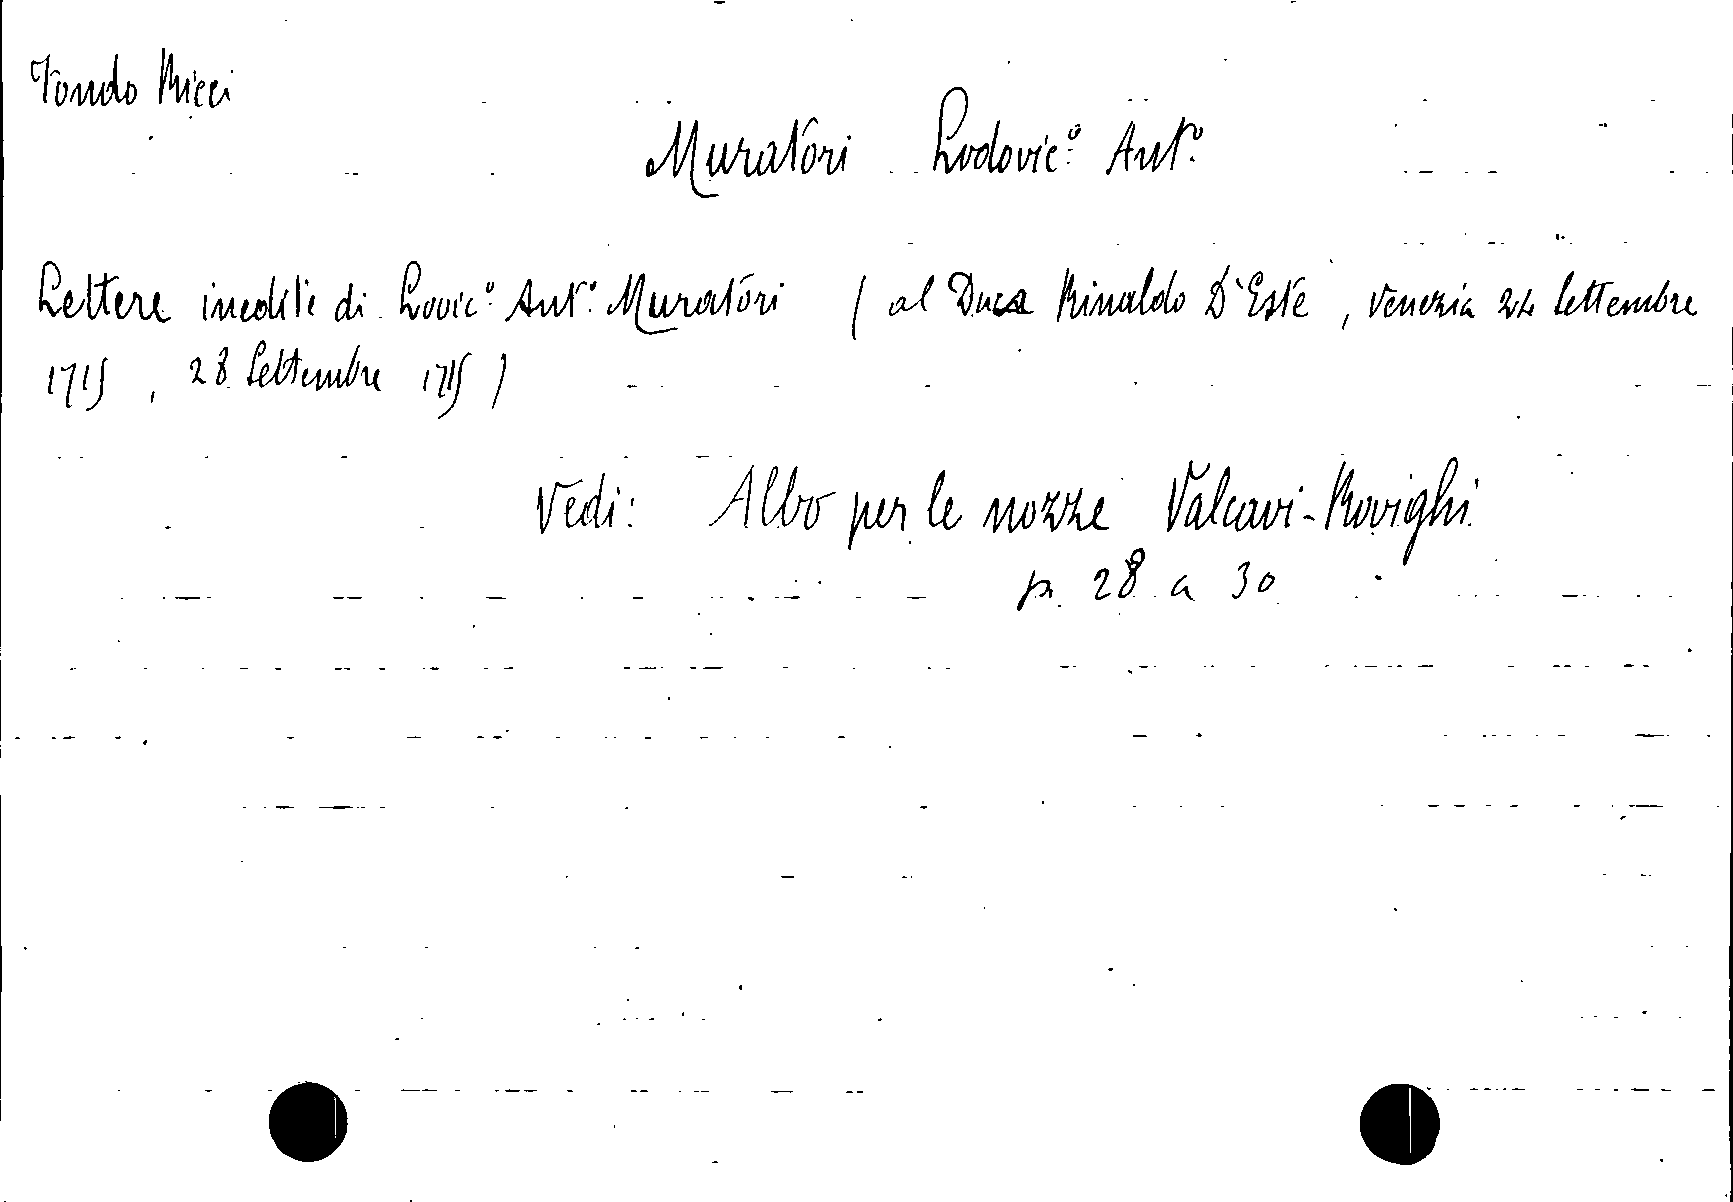 Fondo Ricci
Muratori Lodovic.º Ant.º
Lettere inedite di Lovic.º Ant.º Muratori ( al Duca Rinaldo D'Este, Venezia 24 Settembre
1715, 28 Settembre 1715 )
Vedi: Albo per le nozze Valcavi-Rovighi
p. 28 a 30